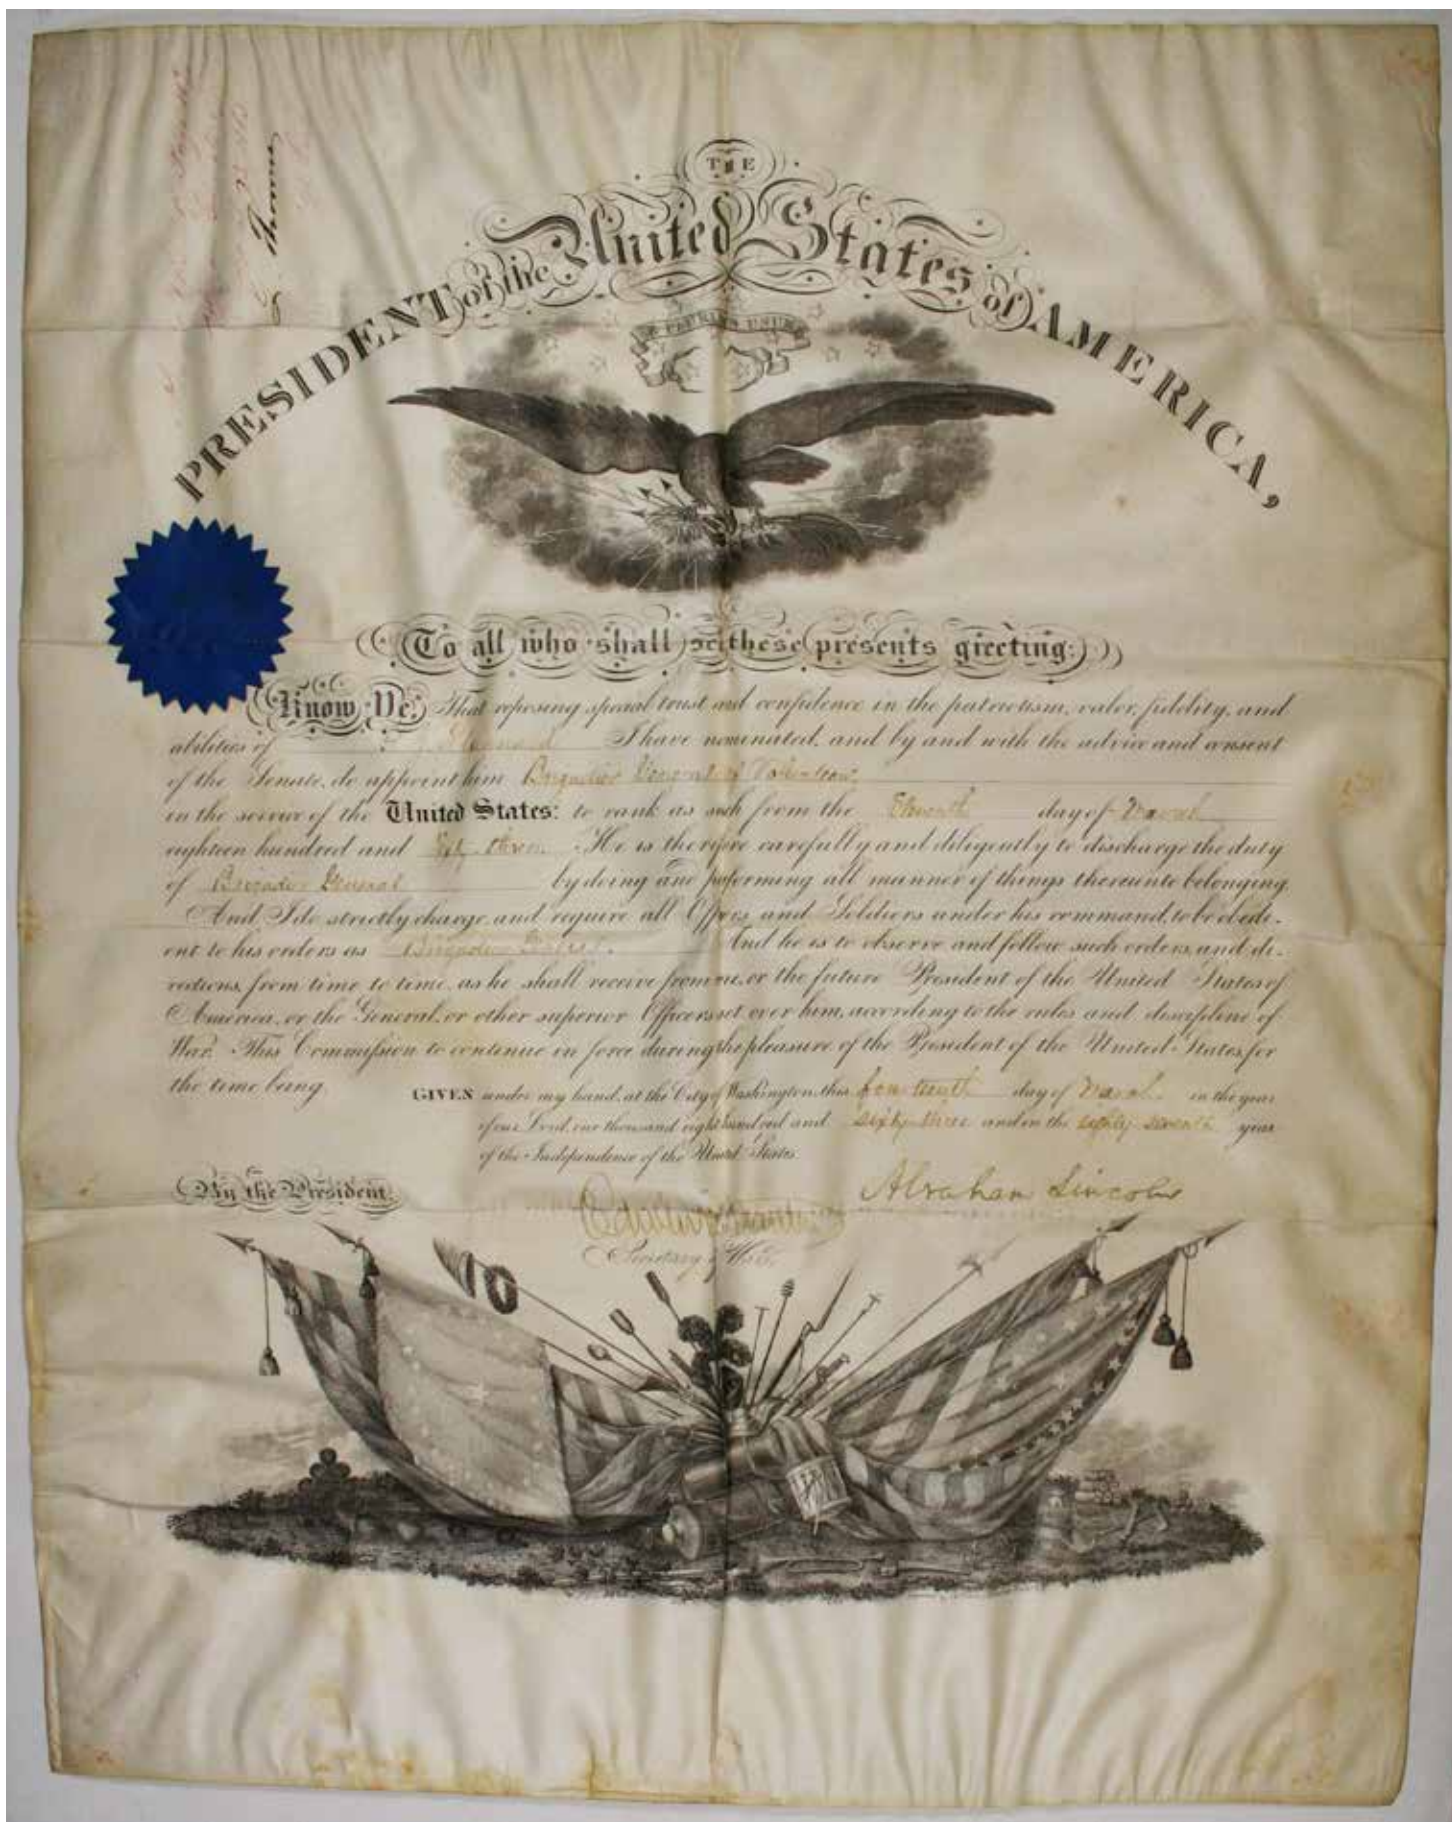 THE
PRESIDENT of the United States of AMERICA,
E PLURIBUS UNUM
Thomas
To all who shall see these presents greeting:
Know Ye, That reposing special trust and confidence in the patriotism, valor, fidelity, and
abilities of I have nominated, and by and with the advice and consent
of the Senate, do appoint him Brigadier General of Volunteers
in the service of the United States: to rank as such from the day of March
eighteen hundred and Sixty three. He is therefore carefully and diligently to discharge the duty
of Brigadier General by doing and performing all manner of things thereunto belonging.
And I do strictly charge, and require all Officers and Soldiers under his command, to be obedi-
ent to his orders as Brigadier General. And he is to observe and follow such orders, and di-
rections, from time to time, as he shall receive from me, or the future President of the United States of
America, or the General, or other superior Officers set over him, according to the rules and discipline of
War. This Commission to continue in force during the pleasure of the President of the United States, for
the time being.
GIVEN under my hand, at the City of Washington, this fourteenth day of March in the year
of our Lord, one thousand eight hundred and sixty three and in the eighty seventh year
of the Independence of the United States.
By the President,
Abraham Lincoln
Edwin M Stanton
Secretary of War.